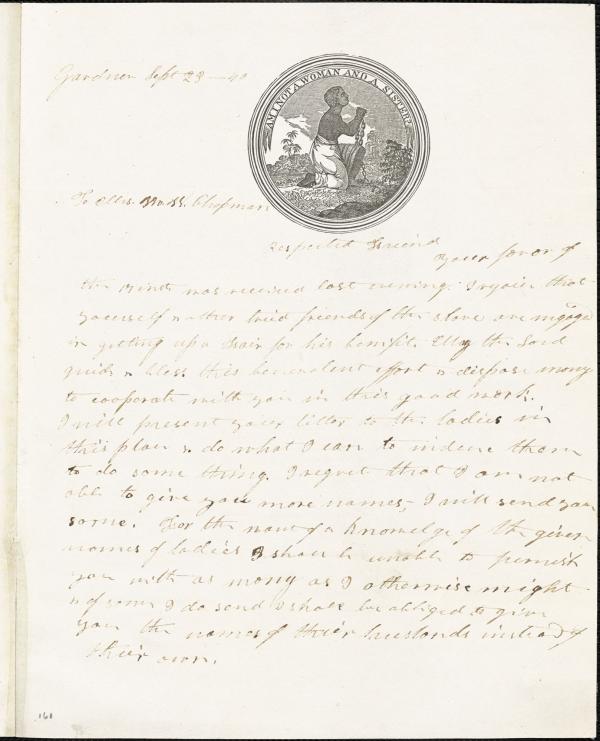 Gardner Sept 28 - 40
AM I NOT A WOMAN AND A SISTER?
To Mrs. Chapman
Respected Friend
Your favor of
the was received last evening. I rejoice that
yourself & other tried friends of the slave are engaged
in getting up a Fair for his benefit. May the Lord
guide & bless this benevolent effort & dispose many
to cooperate with you in this good work.
I will present your letter to the ladies in
this place & do what I can to induce them
to do some thing. I regret that I am not
able to give you more names; I will send you
some. For the want of a knowledge of the given
names of ladies I shall be unable to furnish
you with as many as I otherwise might
& of some I do send I shall be obliged to give
you the names of their husbands instead of
their own.
161